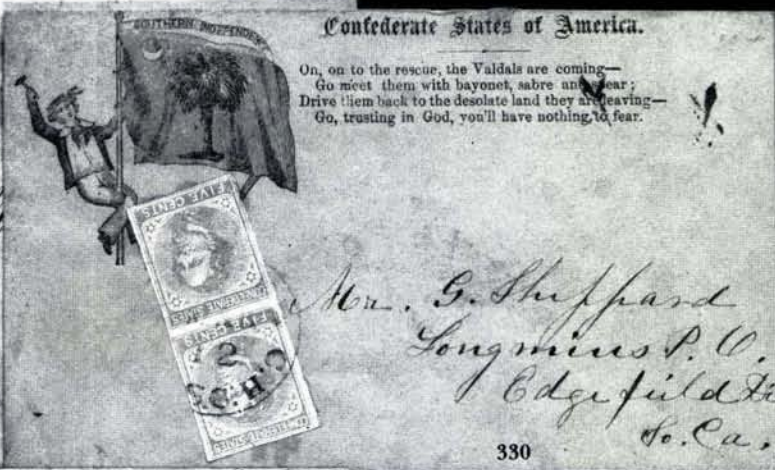 SOUTHERN INDEPENDEN
Confederate States of America.
On, on to the rescue, the Valdals are coming—
Go meet them with bayonet, sabre and spear;
Drive them back to the desolate land they are leaving—
Go, trusting in God, you'll have nothing to fear.
FIVE CENTS.
CONFEDERATE STATES
FIVE CENTS
2
C.H.
CONFEDERATE STATES
Mr. G. Sheppard
Longmires P. O.
Edgefield
So. Ca.
330